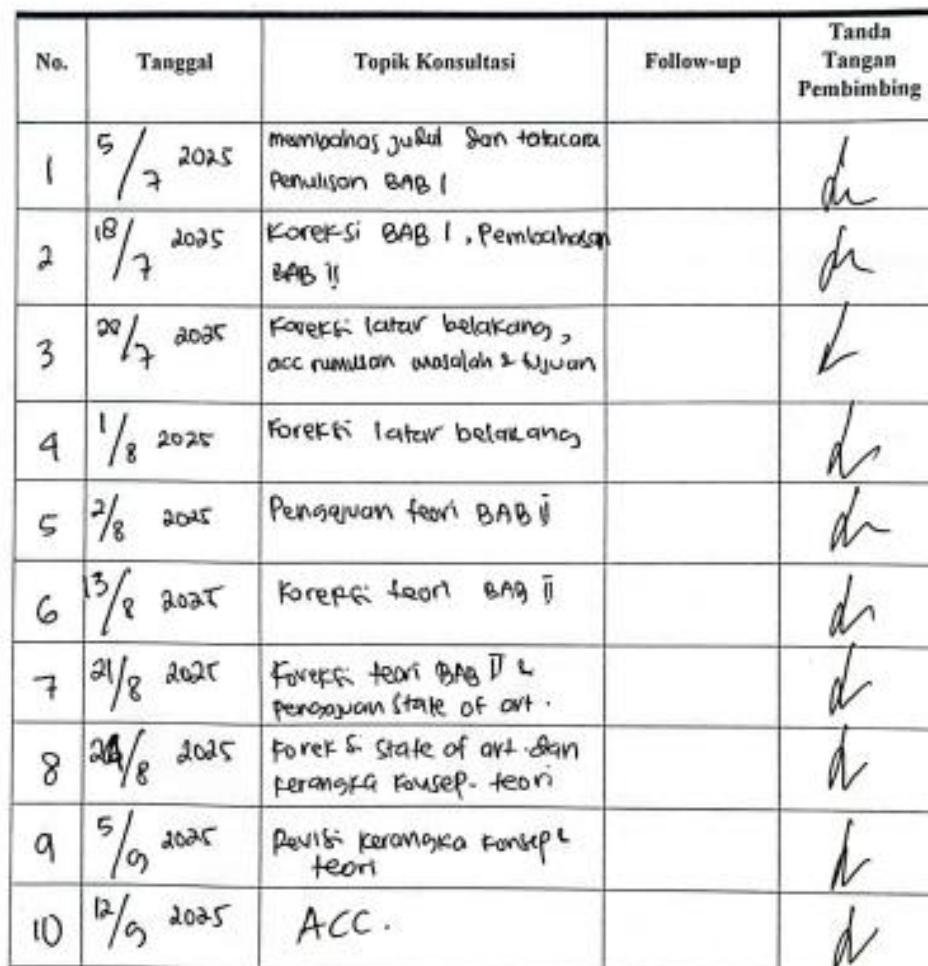 No. Tanggal Topik Konsultasi Follow-up Tanda Tangan Pembimbing
1 5/7 2025 membahas judul dan tatacara
Penulisan BAB I
2 18/7 2025 Koreksi BAB I, Pembahasan
BAB II
3 /7 2025 Koreksi latar belakang,
acc rumusan masalah & tujuan
4 1/8 2025 Koreksi latar belakang
5 2/8 2025 Pengajuan teori BAB II
6 13/8 2025 Koreksi teori BAB II
7 21/8 2025 Koreksi teori BAB II &
pengajuan State of art.
8 /8 2025 Koreksi State of art dan
kerangka konsep-teori
9 5/9 2025 Revisi kerangka konsep &
teori
10 12/9 2025 ACC.